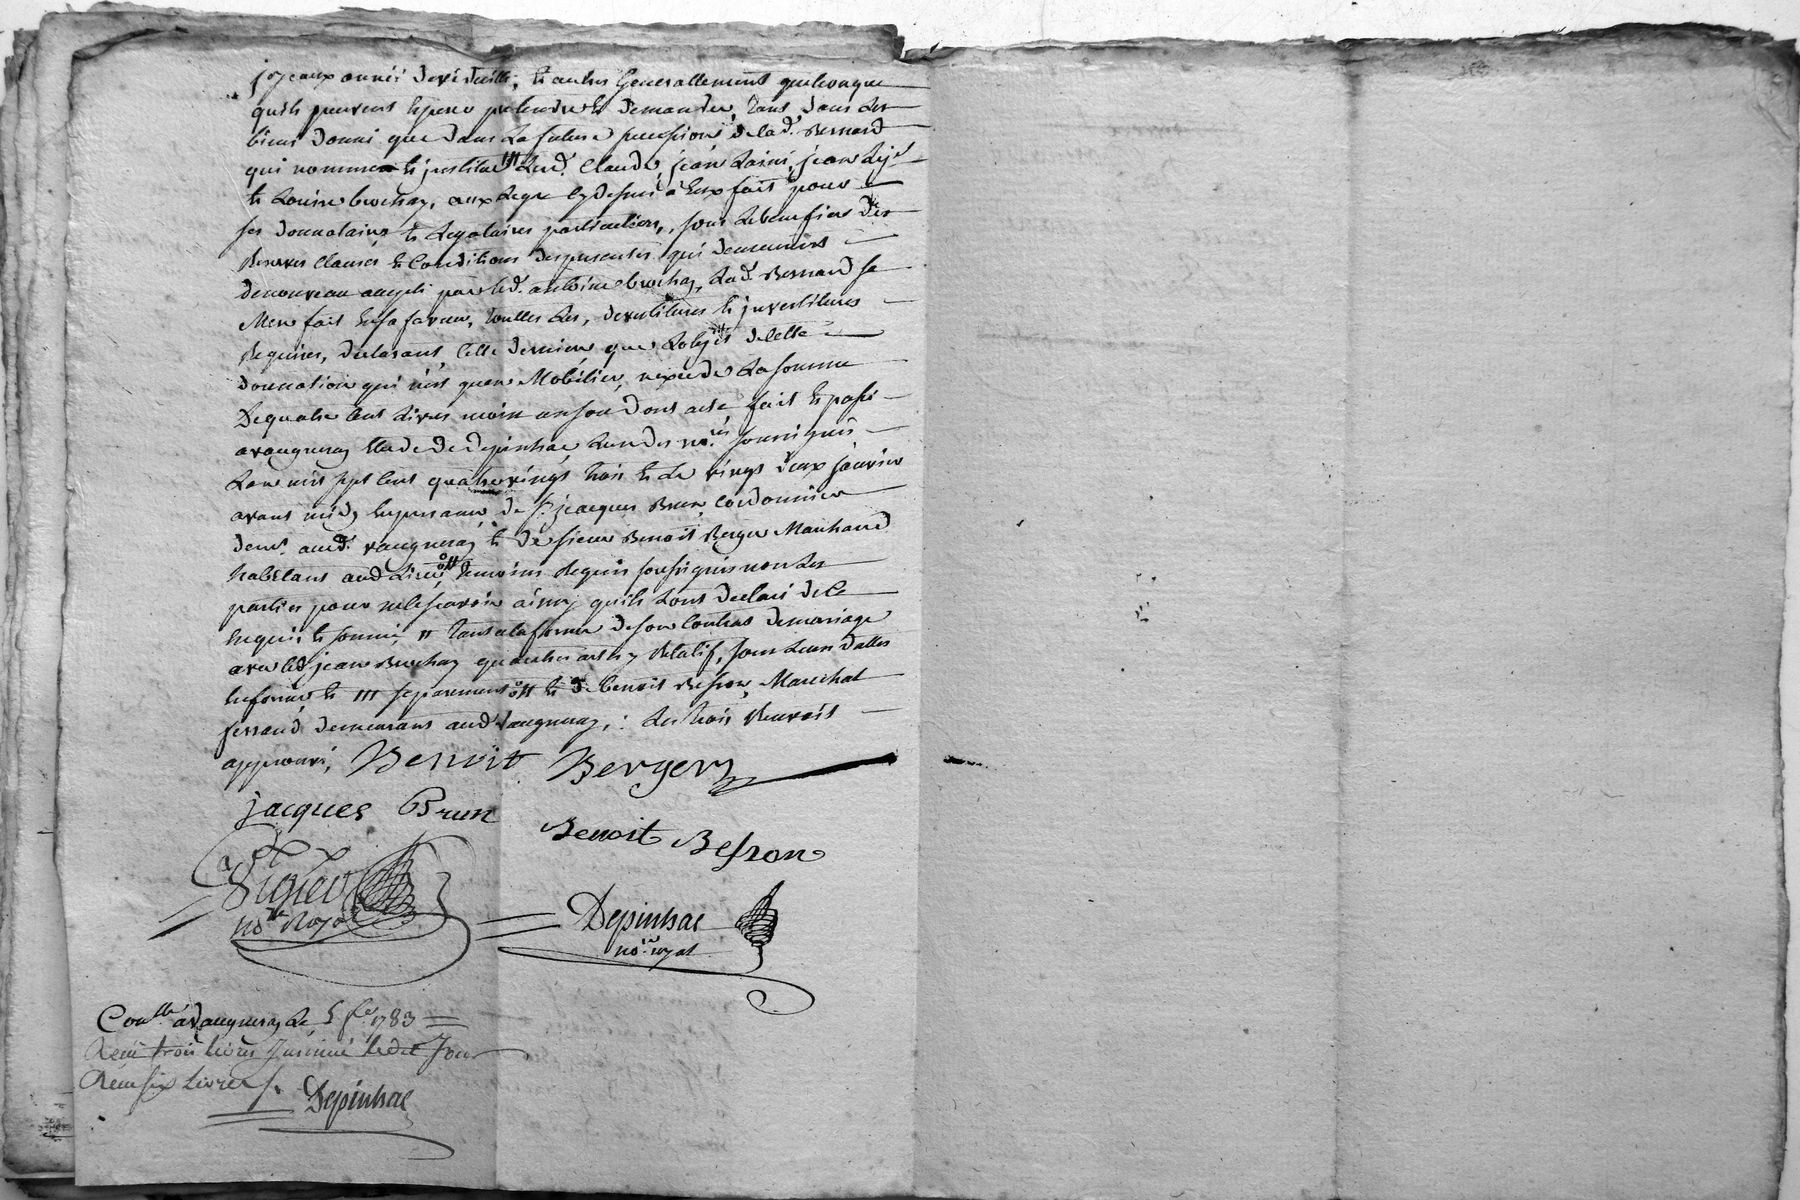 joyeaux année de viduitté, & autres Generallement quelconque
quils peuvent espere pretendre & demander, tant dans les
biens donné que dans la future succession de lad. Bernard
qui nomme & institue lesd. Claude, jean laine, jean
& Louise brochay, aux legs cydessus à Eux fait pour
ses donnataires & legataires particuliers, sous le benefice des
Reserves clauses & conditions des presentes qui demeurent
denouveau accepté par led. antoine brochay, lad. Bernard se
fait ensa faveur, touttes les, devestitures & investitures
Requises, declarant cette derniere que lobjet de cette
donnation qui nest quen Mobilier, nexcede la somme
De quatre cent livres moin un sou dont acte fait & passé
avaugneray Etude de depinhac lun des no.res soussignés
Lan mil sept cent quatrevingt trois & le vingt deux janvier
avant midy En presance de S.r jacques Brun cordonnier
dem.t aud. vaugneray & de sieur Benoit Berger Marchand
habitant aud lieu temoins Requis soussignés non les
parties pour ne le scavoir ainsy quils lont declaré de ce
Enquis & sommé " tant a la forme de son contrat de mariage
avec led jean Brochay
& III separement & de benoit Besson Marechal
ferrand demeurant aud vaugneray, : les trois Renvoit
approuvé, Benoit Berger
jacques Brun
Benoit Besson
no.re Royal
Depinhac
no.re royal
Con.llé avaugneray le 5 f.er 1783
Receu trois livres Insinué ledit Jour
Receu six livres
Depinhac